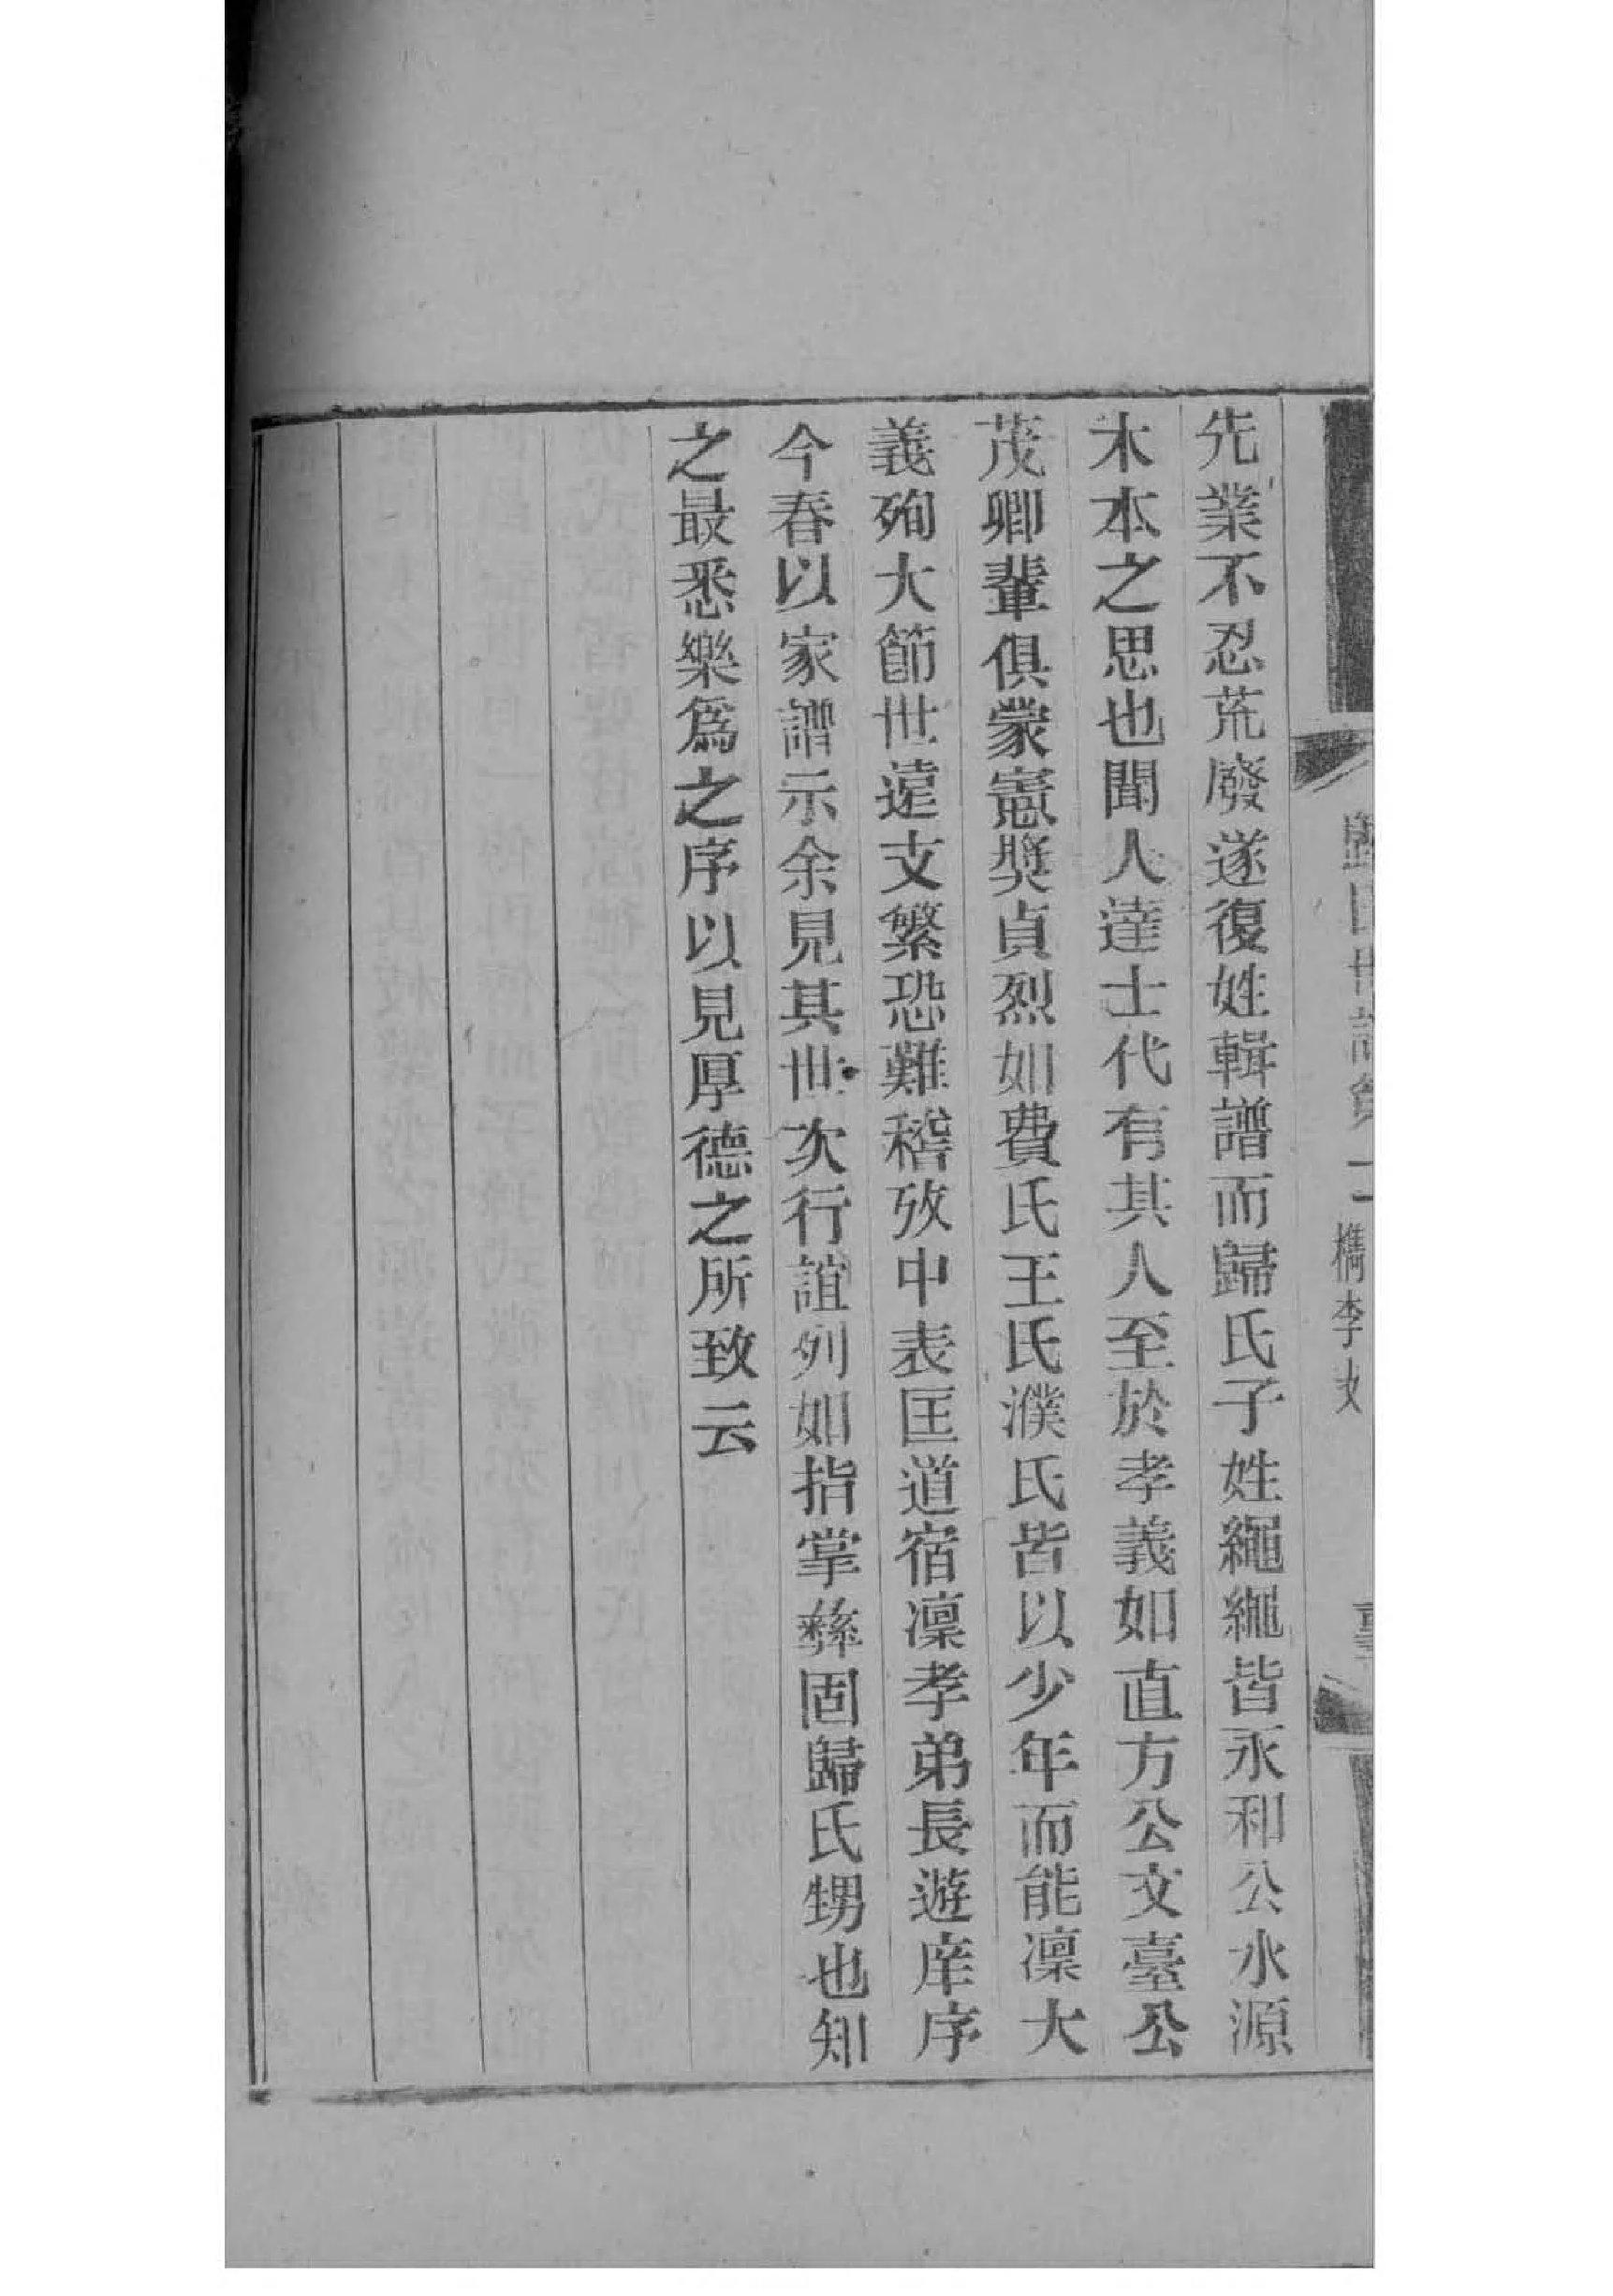 先業不忍荒廢遂復姓輯譜而歸氏子姓繩繩皆永和公水源
木本之思也聞人達士代有其人至於孝義如直方公文臺公
茂卿輩俱蒙憲獎貞烈如費氏王氏濮氏皆以少年而能凜大
義殉大節世遠文繁恐難稽攷中表匡道宿凜孝弟長遊庠序
今春以家譜示余見其世次行誼列如指掌彝固歸氏甥也知
之最悉樂爲之序以見厚德之所致云
歸氏世譜 檇李